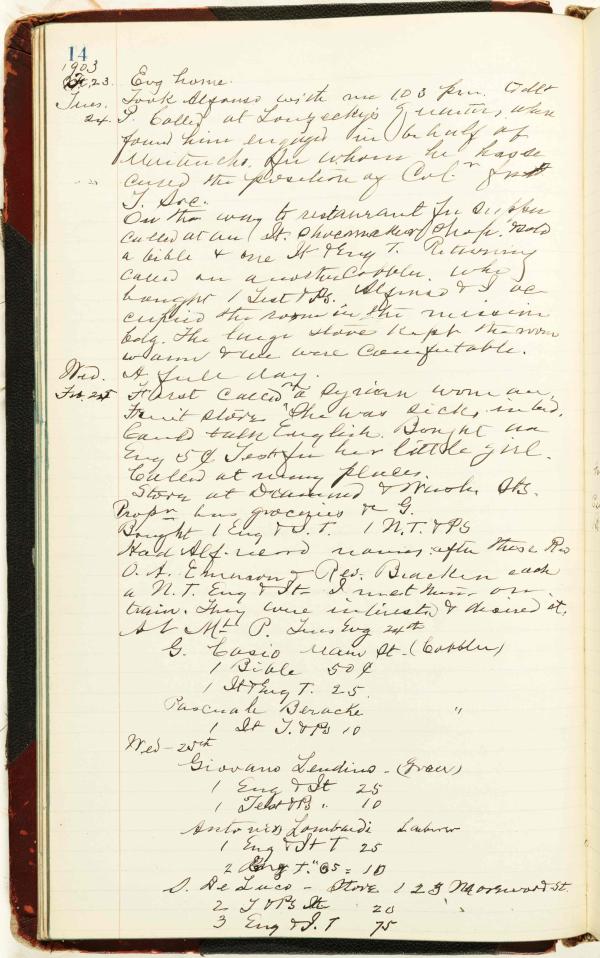 14
1903
23. Evg home.
Tues. Took Alfonso with me 1 03 p.m.
24. P. Called at Quarters, when
found him engaged in behalf of
In whom he has se
cured the position of Col.r
T. Soc.
On the way to restaurant for supper
called at an It. Shoemaker Shop. Sold
a bible & one It & Eng T. Returning
called on another Cobbler. Who
bought 1 Test & Ps. Alfonso & I oc
cupied the room in the mission
bdg. The large stove kept the room
warm & we were comfortable.
Wed. A full day.
Feb 25 First called on a Syrian woman,
Fruit store She was sick, in bed.
Could talk English. Bought an
Eng 5¢ Test for her little girl.
Called at many places.
Store at & Sts.
Propr has groceries & G.
Bought 1 Eng & I. T. 1 N.T. & Ps
Had Alf. record names after those Rev
O. A. Emerson & Rev. Bracken each
a N. T. Eng & It I met them on
train. They were interested & desired it.
At Mt P. Tues Evg 24th
G. Casio Main St. (Cobbler)
1 Bible 50¢
1 It & Eng T. 25.
Pascuale "
1 It T. & Ps 10
Wed - 25th
Giovano Lendino - (Grocer)
1 Eng & It 25
1 Test & Ps " 10
Antonio Lombardi Laborer
1 Eng & It T 25
2 Eng T. " 05 = 10
D. De Luco - Store 123 Morewood St.
2 T & Ps It 20
3 Eng & I. T 75